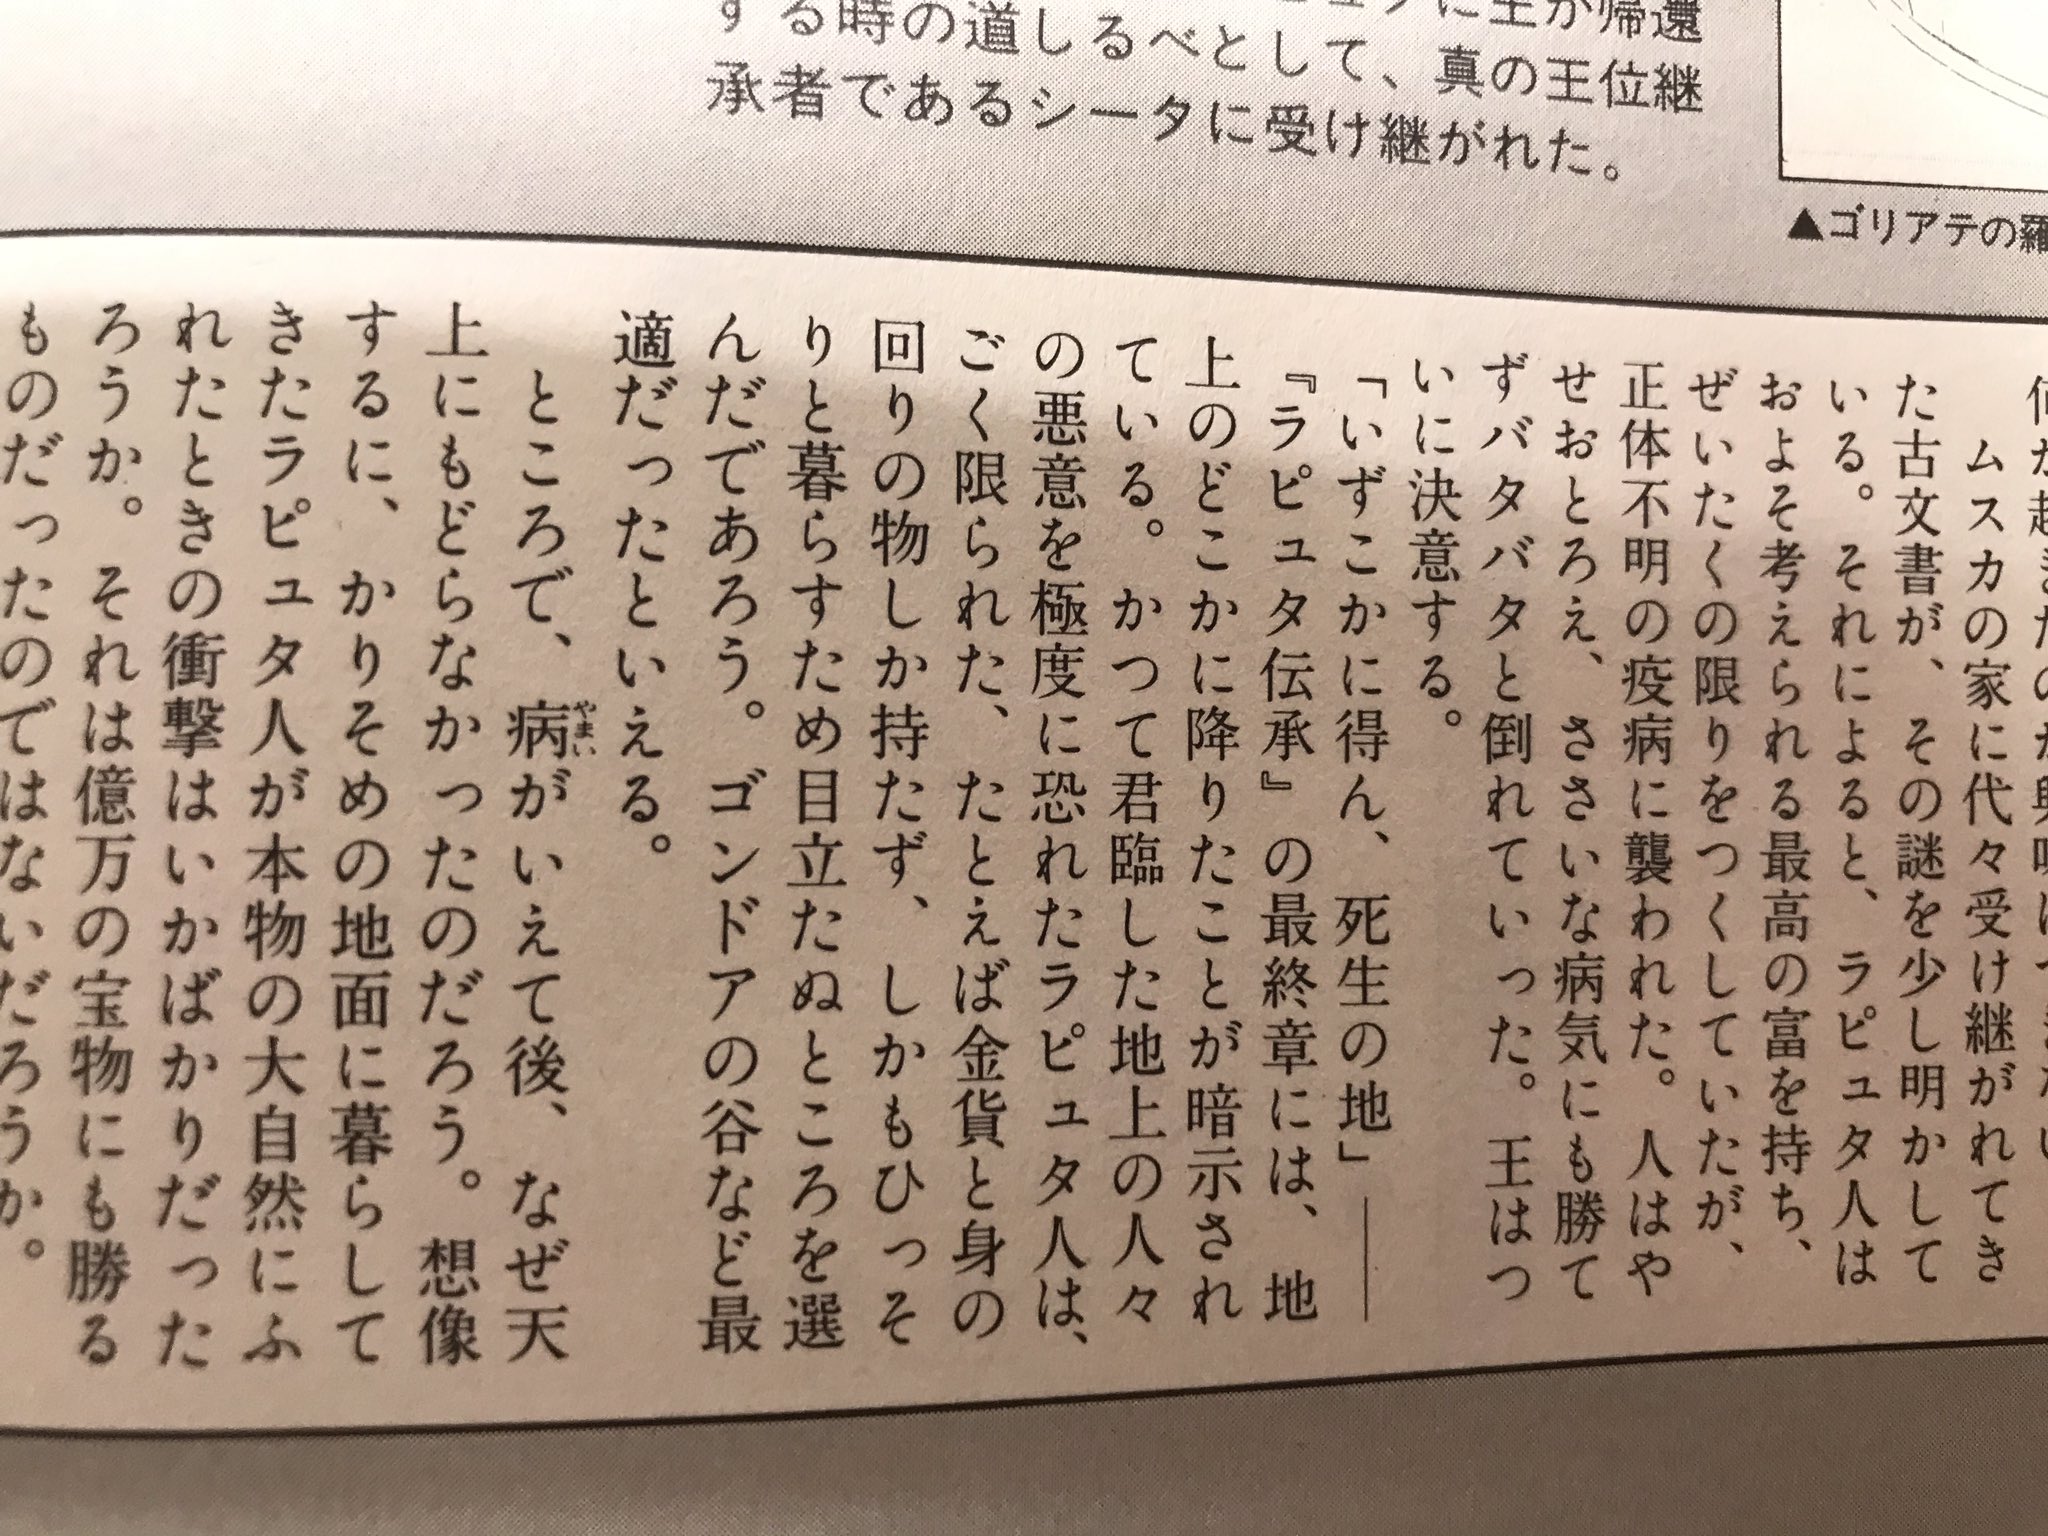 する時の道しるべとして、真の王位継
承者であるシータに受け継がれた。
▲ゴリアテの羅
ムスカの家に代々受け継がれてき
た古文書が、その謎を少し明かして
いる。それによると、ラピュタ人は
およそ考えられる最高の富を持ち、
ぜいたくの限りをつくしていたが、
正体不明の疫病に襲われた。人はや
せおとろえ、ささいな病気にも勝て
ずバタバタと倒れていった。王はつ
いに決意する。
「いずこかに得ん、死生の地」──
『ラピュタ伝承』の最終章には、地
上のどこかに降りたことが暗示され
ている。かつて君臨した地上の人々
の悪意を極度に恐れたラピュタ人は、
ごく限られた、たとえば金貨と身の
回りの物しか持たず、しかもひっそ
りと暮らすため目立たぬところを選
んだであろう。ゴンドアの谷など最
適だったといえる。
ところで、病がいえて後、なぜ天
上にもどらなかったのだろう。想像
するに、かりそめの地面に暮らして
きたラピュタ人が本物の大自然にふ
れたときの衝撃はいかばかりだった
ろうか。それは億万の宝物にも勝る
ものだったのではないだろうか。